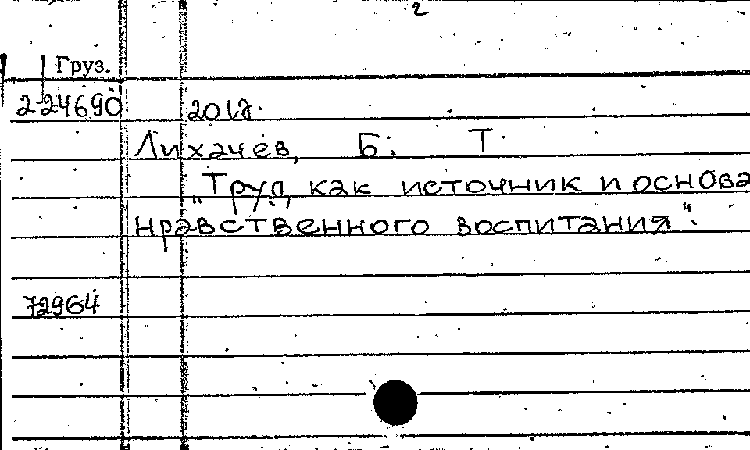 2
Груз.
2-24690
Лихачев, Б. Т.
„Труд, как источник и основа
нравственного воспитания“.
72964